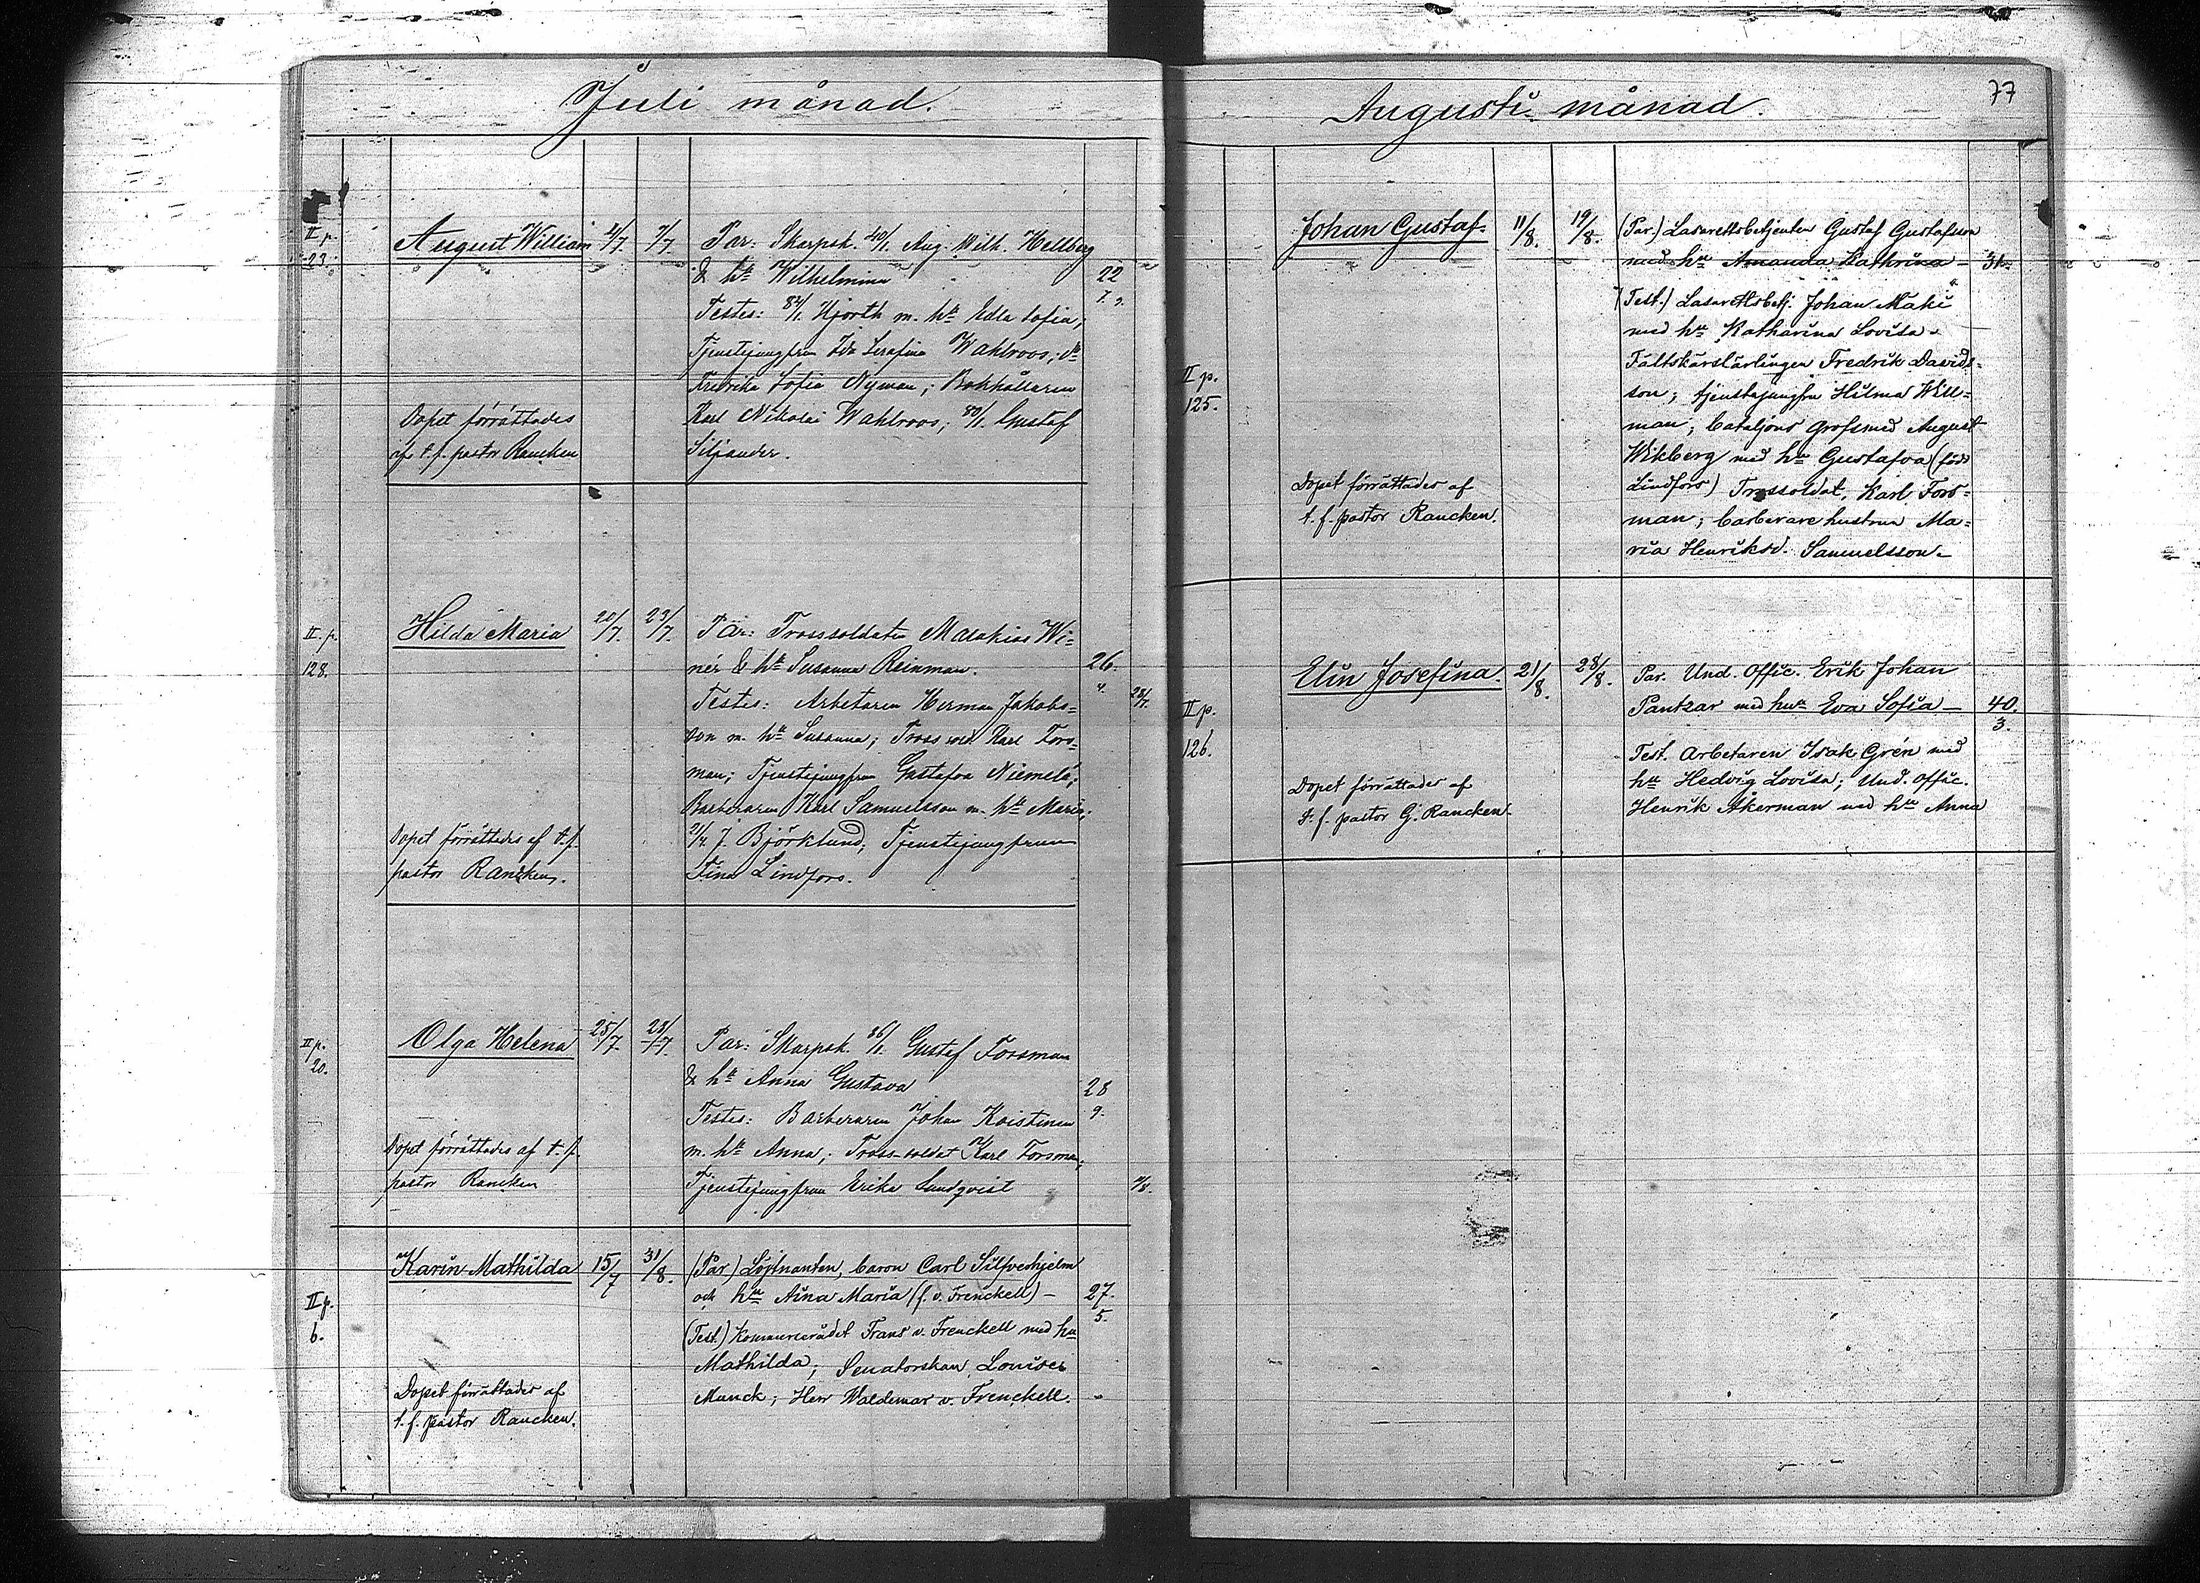 Juli månad.
II p.
23.
August William
2/7. 7/7
Par: Skarpsk. 40/1. Aug. Wilh. Hellberg
& hu Wilhelmina
22
7. 9.
Testes: 82/1. Hjorth m. hu Edla Sofia,
Tjenstejungfrun Ida Serafina Wahlroos,
Fredrika Sofia Nyman; Bokhållaren
Karl Nikolai Wahlroos; 80/1. Gustaf
Siljander.
Dopet förrättades
af t. f. pastor Rancken
II. p.
128.
Hilda Maria
20/7. 23/7.
Par: Trosssoldaten Malakias Wi-
nér & hu Susanna Reinman.
26.
4.
28/7.
Testes: Arbetaren Herman Jakobs-
son m. hu Susanna; Tross sold. Karl Fors-
man; Tjenstejungfrun Gustafva Niemelä;
Barberaren Karl Samuelsson m. hu Maria;
2/4 J. Björklund; Tjenstejungfrun
Fina Lindfors.
Dopet förrättades af t. f.
pastor Rancken.
II p.
20.
Olga Helena
25/7. 28/7.
Par: Skarpsk. 86/1. Gustaf Forsman
& hu Anna Gustava
28
9.
Testes: Barberaren Johan Koistinen
m. hu Anna; Tross-soldat Karl Forsman,
Tjenstejungfrun Erika Lundqvist
Dopet förrättades af t. f.
pastor Rancken
II p.
6.
Karin Mathilda
15/7 31/8.
(Par.) Löjtnanten, baron Carl Silfverhjelm
och hu Aina Maria (f. v. Frenckell) –
27.
5.
(Test.) Kommercerådet Frans v. Frenckell med hu
Mathilda; Senatorskan Louise
Munck; Herr Waldemar v. Frenckell.
Dopet förrättades af
t. f. pastor Rancken.
Augusti månad.
77
II p.
125.
Johan Gustaf
11/8. 19/8.
(Par.) Lasarettsbetjenten Gustaf Gustafsson
med hu Amanda Kathrina –
31.
(Test.) Lasarettsbetj. Johan Mäki
med hu Katharina Lovisa.
Fältskärslärlingen Fredrik Davids-
son; tjenstejungfru Hilma Will-
man; bataljons grofsmed August
Wikberg med hu Gustafva (född
Lindfors) Trossoldat. Karl Fors-
man; barberare hustrun Ma-
ria Henriksd. Samuelsson.
Dopet förrättades af
t. f. pastor Rancken.
II p.
126.
Elin Josefina.
21/8. 28/8.
Par. Und. Offic. Erik Johan
Pantzar med hu Eva Sofia –
40.
3.
Test. Arbetaren Isak Grén med
hu Hedvig Lovisa; Und. Offic.
Henrik Åkerman med hu Anna
Dopet förrättades af
t. f. pastor G. Rancken.